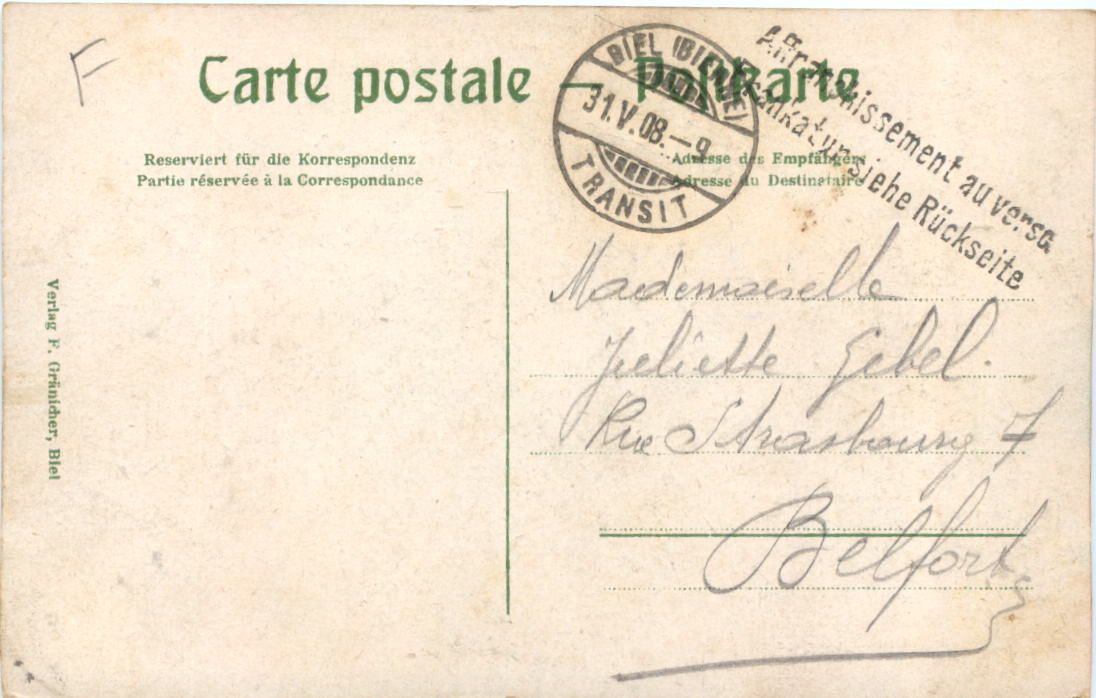 F
Carte postale — Postkarte
BIEL (BIENNE)
31.V.08.—9
TRANSIT
Affranchissement au verso
Frankatur siehe Rückseite
Reserviert für die Korrespondenz
Partie réservée à la Correspondance
Adresse des Empfängers
Adresse du Destinataire
Verlag F. Gränicher, Biel
Mademoiselle
Juliette Gebel.
Rue Strasbourg 7
Belfort